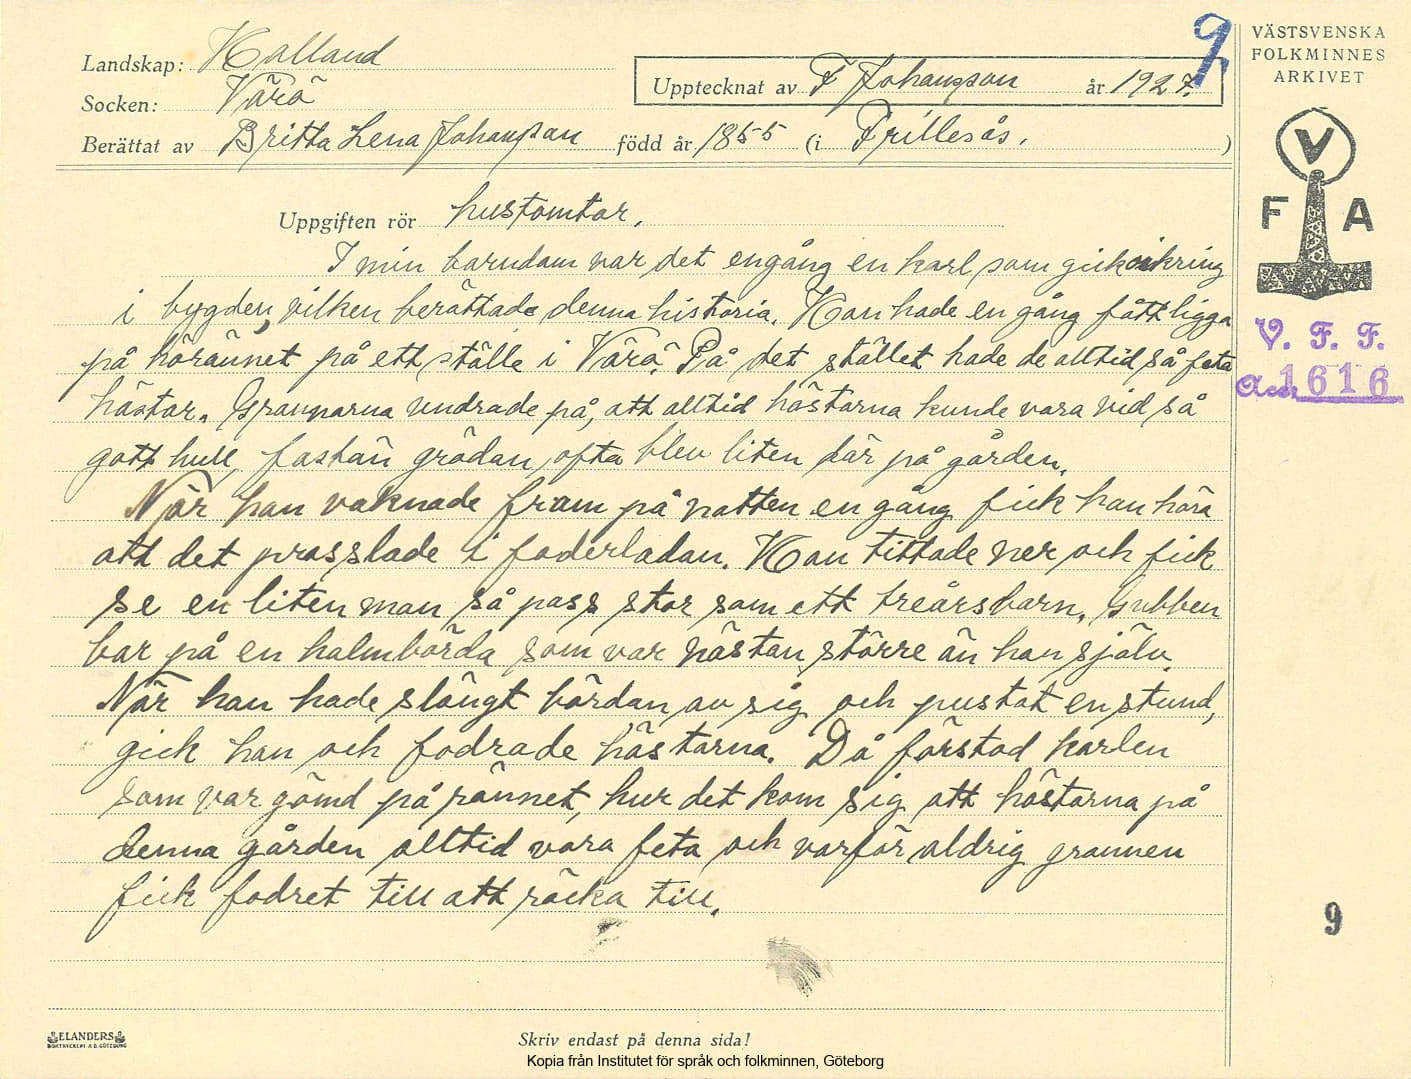 9
Landskap: Halland
Socken: Värö
Upptecknat av F Johansson år 1927.
Berättat av Britta Lena Johansson född år 1855 (i Frillesås. )
VÄSTSVENSKA
FOLKMINNES
ARKIVET
V
F A
V. F. F.
Acc 1616
Uppgiften rör hustomtar.
I min barndom var det engång en karl som gick omkring
i bygden, vilken berättade denna historia. Han hade en gång fått ligga
på hörännet på ett ställe i Värö. På det stället hade de alltid så feta
hästar. Grannarna undrade på, att alltid hästarna kunde vara vid så
gott hull, fastän grödan ofta blev liten där på gården.
När han vaknade fram på natten en gång fick han höra
att det prasslade i foderladan. Han tittade ner och fick
se en liten man så pass stor som ett treårsbarn. Gubben
bar på en halmbörda som var nästan större än han själv.
När han hade slängt bördan av sig och pustat en stund,
gick han och fodrade hästarna. Då förstod karlen
som var gömd på rännet, hur det kom sig att hästarna på
denna gården alltid vara feta och varför aldrig grannen
fick fodret till att räcka till.
9
ELANDERS
BOKTRYCKERI A.B. GÖTEBORG
Skriv endast på denna sida!
Kopia från Institutet för språk och folkminnen, Göteborg